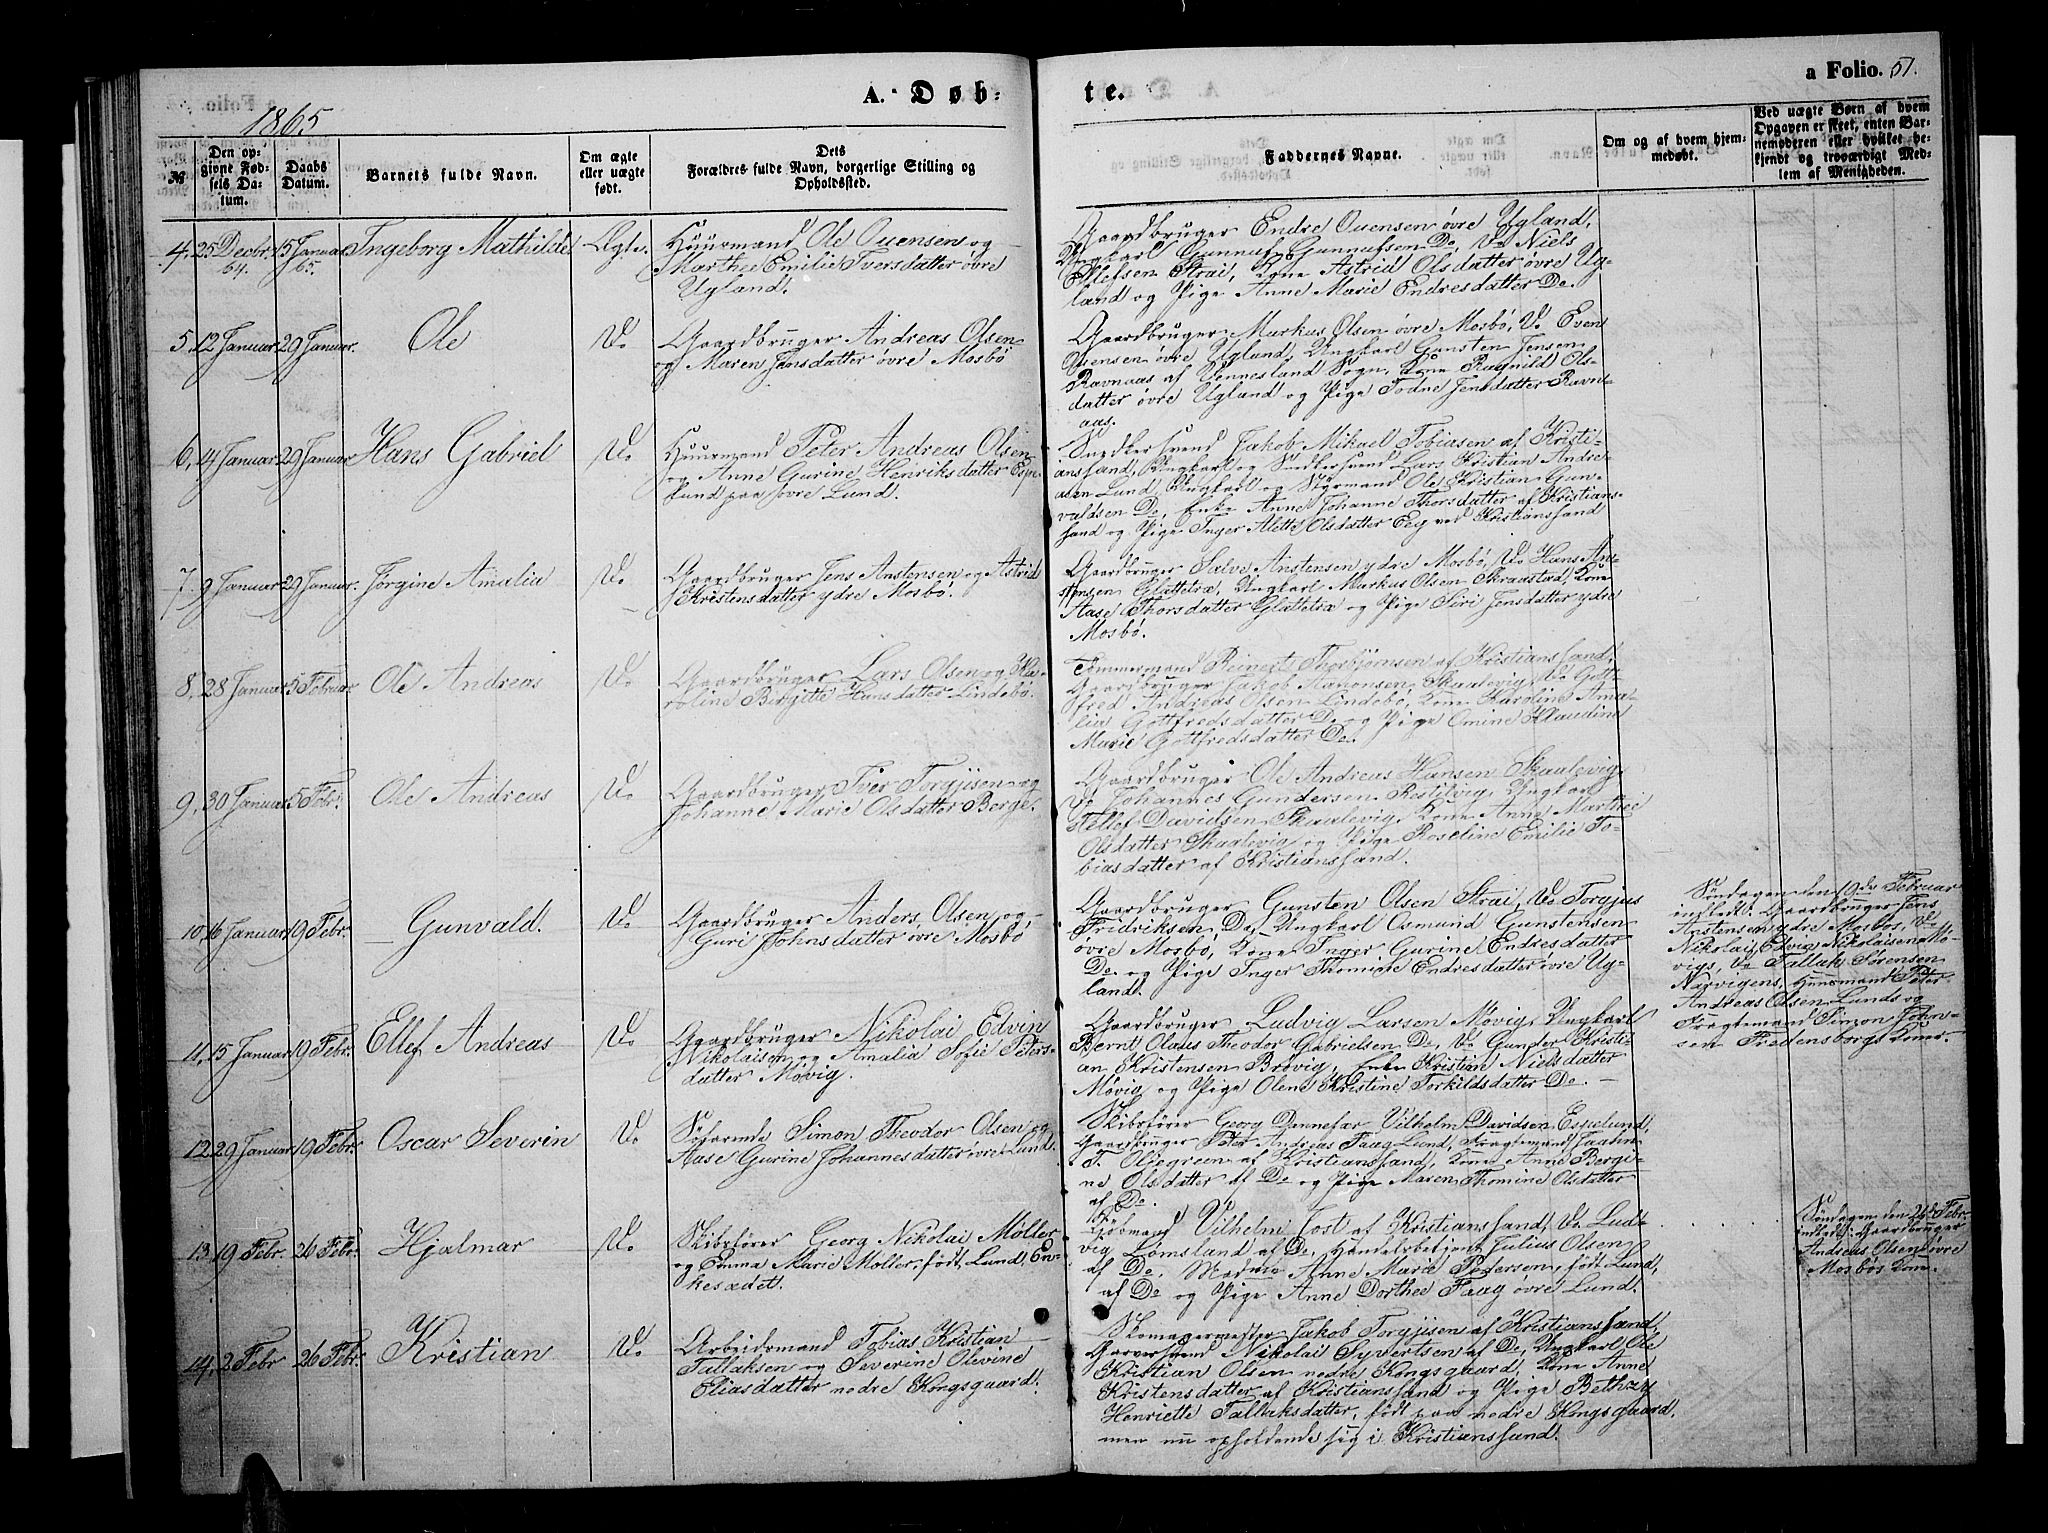 1865
A. Døb=
te.
a Folio. 51.
№
Den op-
givne Fød-
sels Da-
tum.
Daabs
Datum.
Barnets fulde Navn.
Om ægte
eller uægte
født.
Dets
Forældres fulde Navn, borgerlige Stilling og
Opholdssted.
Faddernes Navne.
Om og af hvem hjem-
medøbt.
Ved uægte Børn af hvem
Opgaven er skeet, enten Bar-
nemoderen eller hvilket be-
kjendt og troværdigt Med-
lem af Menigheden.
4. 25 Decbr. 64. 15 Januar 65. Ingeborg Mathilde Ægte.
Huusmand Ole Ouensen og
Marthe Emilie Iversdatter øvre
Ugland.
Gaardbruger Endre Ouensen øvre Ugland,
Ungkarl Gunnuf Gunnufsen Do, Do Niels
Ellefsen Strai, Kone Astrid Olsdatter øvre Ug-
land og Pige Anne Marie Endresdatter Do.
5. 12 Januar 29 Januar. Ole Do
Gaardbruger Andreas Olsen
og Maren Jensdatter øvre Mosbø
Gaardbruger Markus Olsen øvre Mosbø, Do Even
Osensen øvre Ugland, Ungkarl Gunsten Jensen
Ravnaas af Vennesland Sogn, Kone Ragnild Ols-
datter øvre Ugland og Pige Todne Jensdatter Ravn-
aas.
6. 4 Januar 29 Januar Hans Gabriel Do
Huusmand Peter Andreas Olsen
og Anne Gurine Henriksdatter Espe-
lund paa øvre Lund.
Snedkersvend Jakob Mikael Tobiasen af Kristi-
anssand, Ungkarl og Snedkersvend Lars Kristian Andre-
asen Lund, Ungkarl og Styrmand Ole Kristian Gun-
valdsen Do, Enke Anne Johanne Thorsdatter af Kristians-
sand og Pige Inger Alette Olsdatter Eeg ved Kristianssand
7. 9 Januar 29 Januar. Jørgine Amalia Do
Gaardbruger Jens Anstensen og Astrid
Kristensdatter ydre Mosbø.
Gaardbruger Salve Anstensen ydre Mosbø, Do Hans An-
stensen Glattetræ, Ungkarl Markus Olsen Skraastad, Kone
Aase Thorsdatter Glattetræ og Pige Siri Jensdatter ydre
Mosbø.
8. 28 Januar 5 Februar Ole Andreas Do
Gaardbruger Lars Olsen og Ka-
roline Birgitte Hansdatter Lindebø.
Tømmermand Reinert Thorbjørnsen af Kristianssand,
Gaardbruger Jakob Aanonsen Skaalevig, Do Gott-
fred Andreas Olsen Lindebø, Kone Karoline Ama-
lia Gottfredsdatter Do og Pige Omine Klaudine
Marie Gottfredsdatter Do.
9. 30 Januar 5 Febr. Ole Andreas Do
Gaardbruger Iver Torgjisen og
Johanne Marie Olsdatter Berge.
Gaardbruger Ole Andreas Hansen Skaalevig,
Do Johannes Gundersen Restilvig, Ungkarl
Tellef Davidsen Skaalevig, Kone Anne Marthe
Olsdatter Skaalevig og Pige Roseline Emilie To-
biasdatter af Kristianssand.
10. 16 Januar 19 Febr. Gunvald. Do
Gaardbruger Anders Olsen og
Guri Johnsdatter øvre Mosbø
Gaardbruger Gunsten Olsen Strai, Do Torgjus
Fridriksen Do, Ungkarl Osmund Gunstensen
øvre Mosbø, Kone Inger Gurine Endresdatter
Do og Pige Inger Thomine Endresdatter øvre Ug-
land.
Søndagen den 19de Februar
indledt: Gaardbruger Jens
Anstensen ydre Mosbøs, Do
Nikolai Edvin Nikolaisen Mø-
vigs, Do Tallak Sørensen
Narvigens, Huusmand Peter
Andreas Olsen Lunds og
Fragtemand Simon John-
sen Fredensborgs Koner.
11. 15 Januar 19 Febr. Ellef Andreas Do
Gaardbruger Nikolai Edvin
Nikolaisen og Amalia Sofie Peters-
datter Møvig.
Gaardbruger Ludvig Larsen Møvig, Ungkarl
Bernt Olaus Theodor Gabrielsen Do, Do Gunder Kristi-
an Kristensen Brøvig, Enke Kristian Nielsdatter
Møvig og Pige Olene Kristine Torkildsdatter Do.
12. 29 Januar 19 Febr. Oscar Severin Do
Søfarende Simon Theodor Olsen og
Aase Gurine Johannesdatter øvre Lund.
Skibsfører Georg Dannefær Vilhelm Davidsen Espelund,
Gaardbruger Peter Andreas Faag Lund, Fragtemand Joachn
T. Oljegreen af Kristianssand, Kone Anne Bergi-
ne Olsdatter af Do og Pige Maren Thomine Olsdatter
af Do.
13. 19 Febr. 26 Febr. Hjalmar Do
Skibsfører Georg Nikolai Møller
og Emma Marie Møller, født Lund, En-
kesædet.
Kjøbmand Vilhelm Jost af Kristianssand, Do Lud-
vig Lomsland af Do, Handelsbetjent Julius Olsen
af Do, Madme Anne Marie Pedersen, født Lund,
af Do og Pige Anne Dorthea Faag øvre Lund.
Søndagen den 26 Febr.
indledt: Gaardbruger
Andreas Olsen øvre
Mosbøs Kone.
14. 2 Febr 26 Febr. Kristian Do
Arbeidsmand Tobias Kristian
Tallaksen og Severine Olevine
Eliasdatter nedre Kongsgaard.
Skomagermester Jakob Torgjisen af Kristianssand,
Garversvend Nikolai Syvertsen af Do, Ungkarl Ole
Kristian Olsen nedre Kongsgaard, Kone Anne
Kristensdatter af Kristianssand og Pige Bethzy
Henriette Tallaksdatter, født paa nedre Kongsgaard,
men nu opholdende sig i Kristianssand.